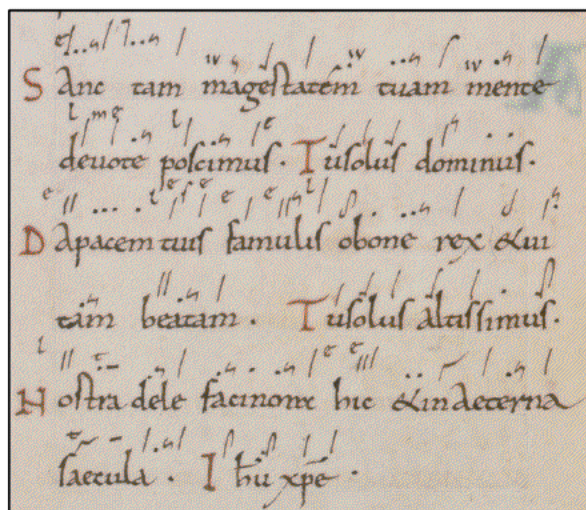 SAnc tam magestatem tuam mente
deuote poscimus. Tusolus dominus.
DApacem tuis famulis obone rex &ui
tam beatam. Tusolus altissimus.
Nostra dele facinora hic &inaeterna
saecula. Ihu xpe.